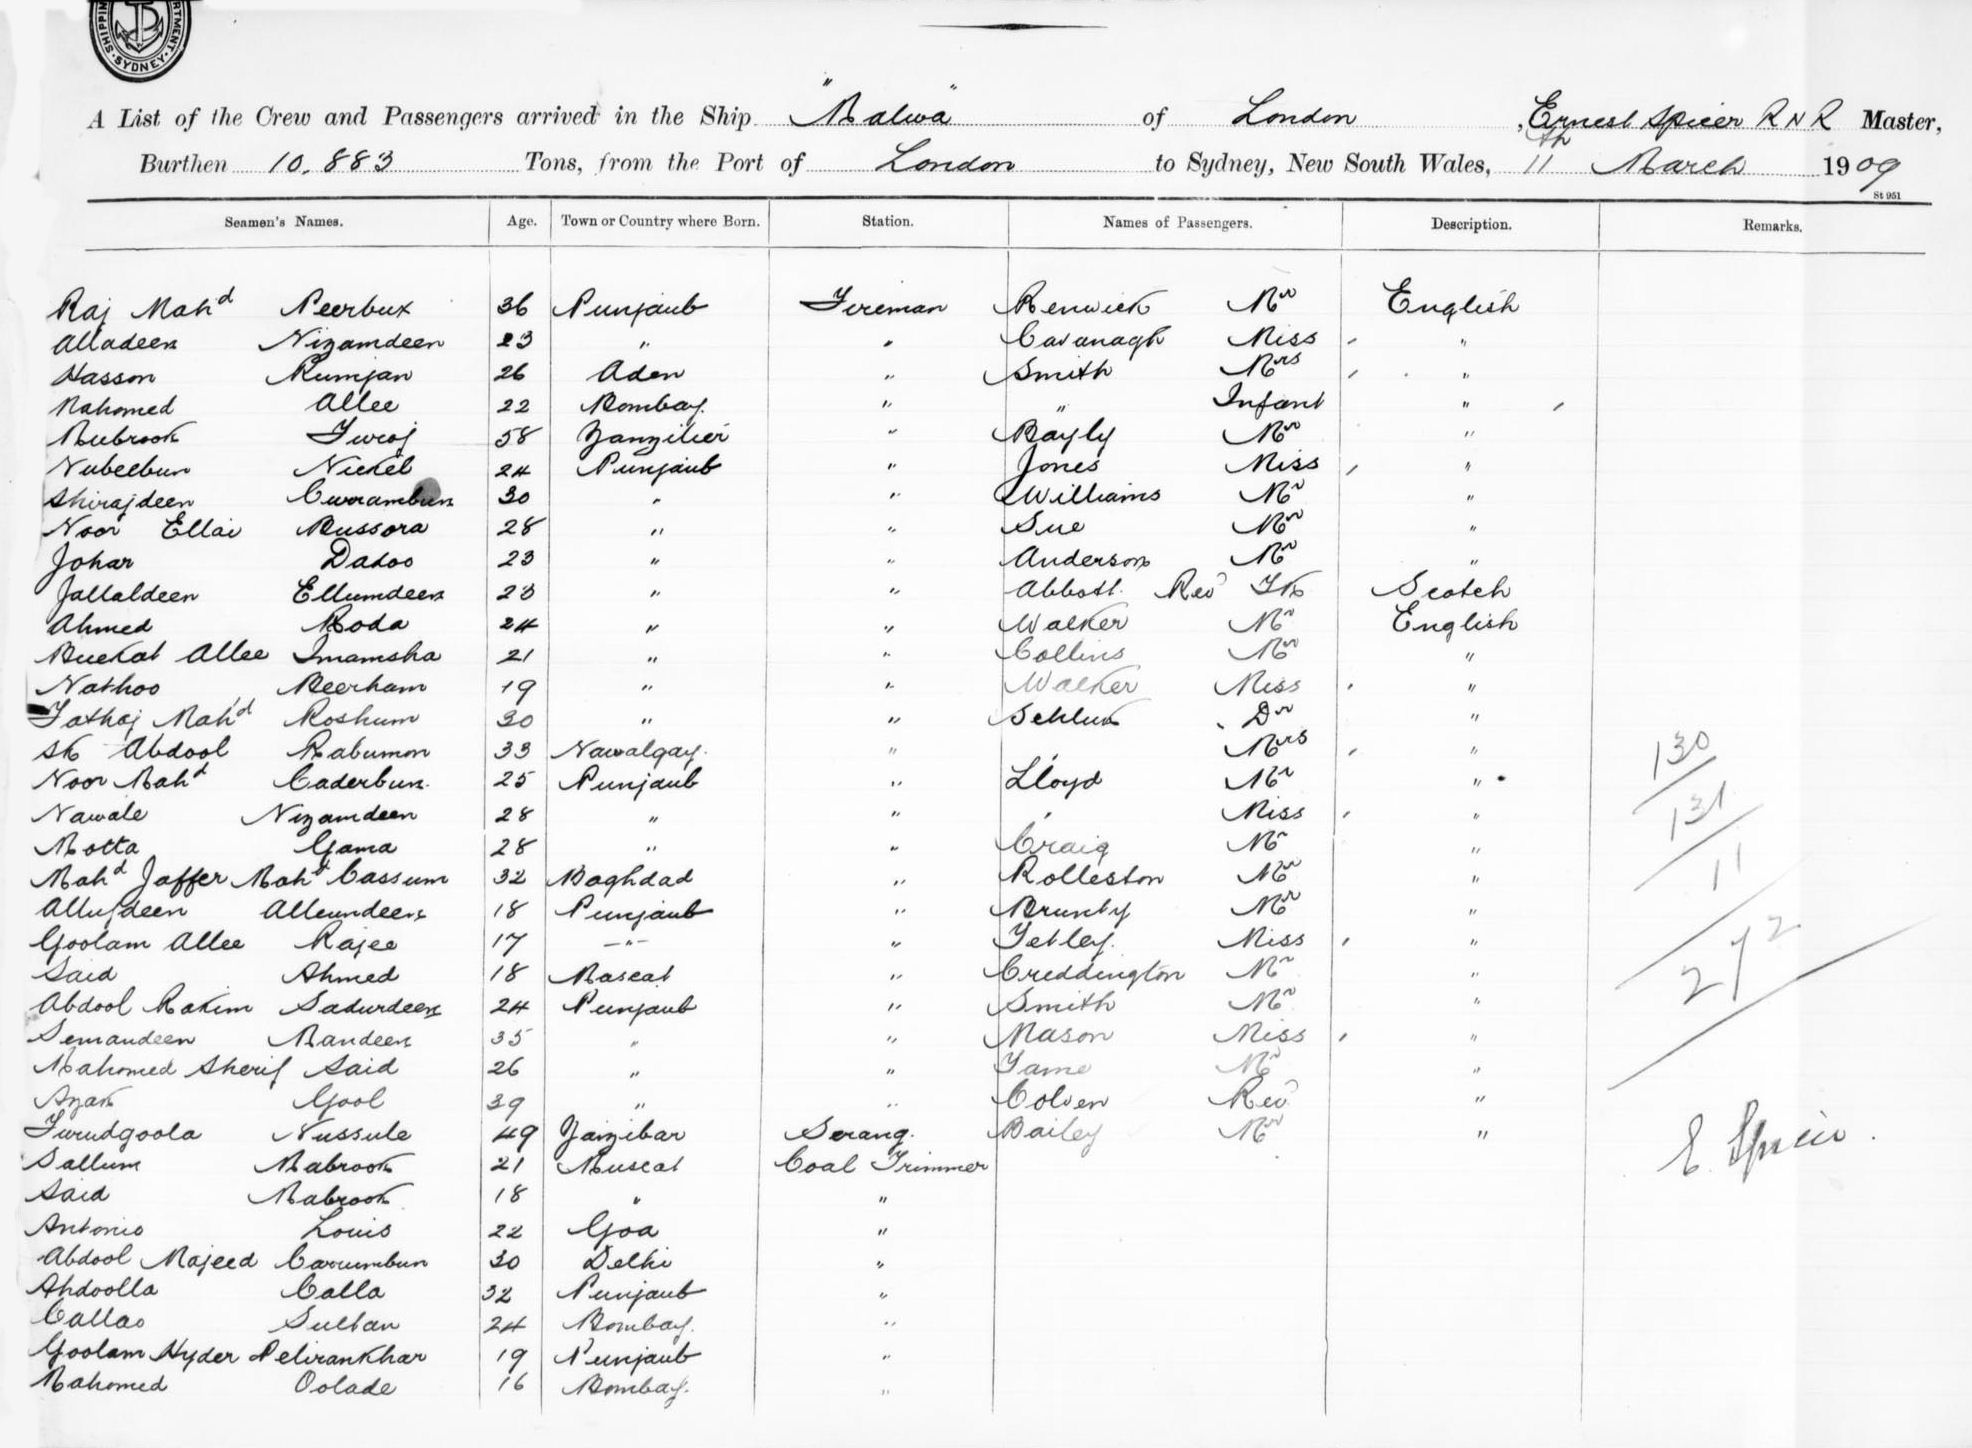 SHIPPIN RTMENT. SYDNEY
A List of the Crew and Passengers arrived in the Ship "Malwa" of London, Ernest Spicer R N R Master,
Burthen 10.883 Tons, from the Port of London to Sydney, New South Wales, 11th March 1909
St 951
Seamen's Names. Age. Town or Country where Born. Station. Names of Passengers. Description. Remarks.
Raj Mahd Peerbux 36 Punjaub Fireman Renwick Mr English
Alladeen Nizamdeen 23 " " Cavanagh Miss "
Hasson Rumjan 26 Aden " Smith Mrs "
Mahomed Allee 22 Bombay. " " Infant "
Mubrook Furoj 58 Zanzibar " Bayly Mr "
Nubeebun Nickel 24 Punjaub " Jones Miss "
Shirajdeen Currambun 30 " " Williams Mr "
Noor Ellai Bussora 28 " " Sue Mr "
Johar Dadoo 23 " " Anderson Mr "
Jallaldeen Ellumdeen 23 " " Abbott. Revd Scotch
Ahmed Moda 24 " " Walker Mr English
Buckat Allee Imamsha 21 " " Collins Mr "
Nathoo Meerham 19 " " Walker Miss "
Fathaj Mahd Roshum 30 " " Schlink Dr "
Sk Abdool Rabumon 33 Nawalgay. " " Mrs "
Noor Mahd Caderbux. 25 Punjaub " Lloyd Mr "
Nawale Nizamdeen 28 " " " Miss "
Motta Gama 28 " " Craig Mr "
Mahd Jaffer Mahd Cassum 32 Baghdad " Rolleston Mr "
Allufdeen Alleundeen 18 Punjaub " Brunty Mr "
Goolam Allee Rajee 17 " " Tetley. Miss "
Said Ahmed 18 Mascat " Creddington Mr "
Abdool Rakim Sadurdeen 24 Punjaub " Smith Mr "
Semandeen Mandeen 35 " " Mason Miss "
Mahomed Sherif Said 26 " " Fame Mr "
Azak Gool 39 " " Colven Revd "
Furudgoola Nussule 49 Zanzibar Serang. Bailey Mr "
Sallum Mabrook 21 Muscat Coal Trimmer
Said Mabrook 18 " "
Antonio Louis 22 Goa "
Abdool Majeed Carrumbun 30 Delhi "
Abdoolla Calla 32 Punjaub "
Calloo Sultan 24 Bombay. "
Goolam Hyder Pelirankhar 19 Punjaub "
Mahomed Oolade 16 Bombay. "
130
131
11
272
E. Spicer.